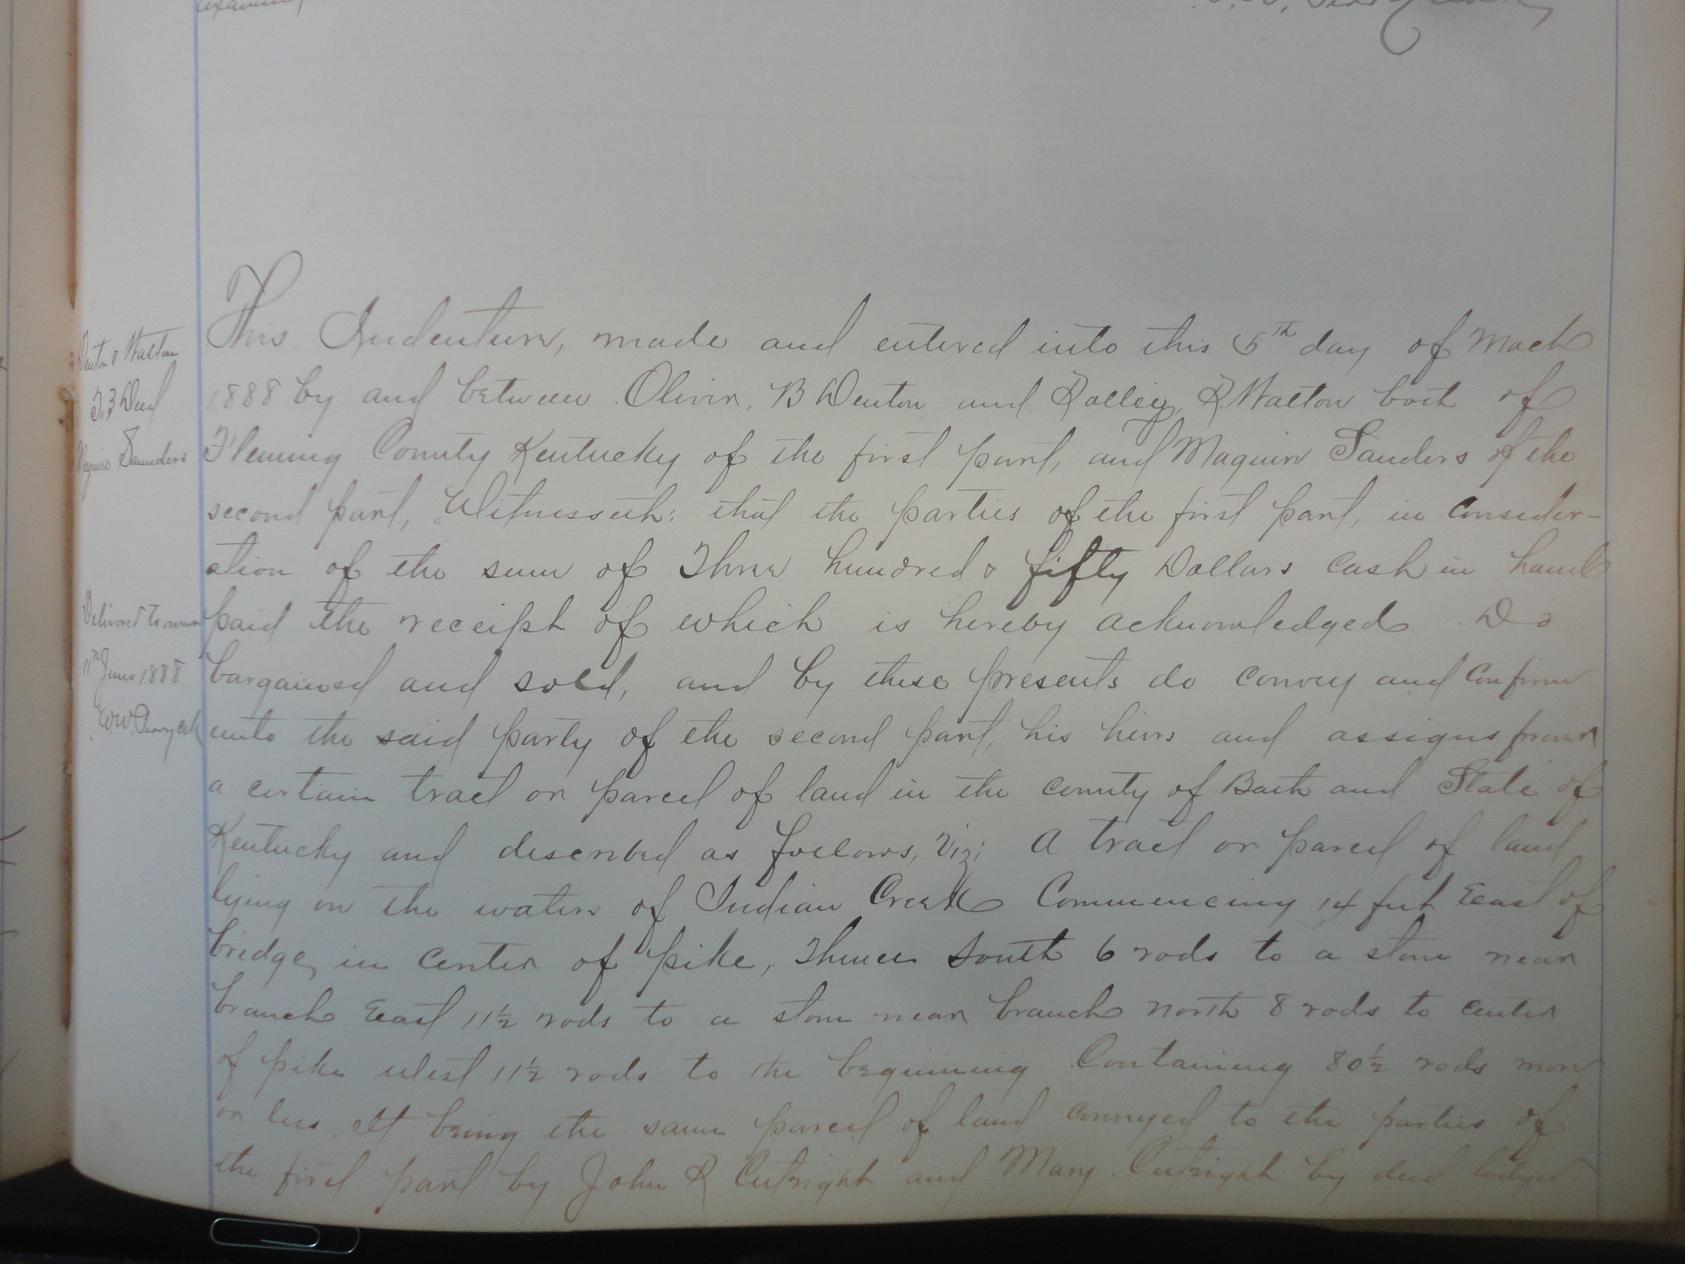 This Indenture, made and entered into this 5th day of March
1888 by and between Oliver, B Denton and Rolley, R Walton both of
Fleming County Kentucky of the first part, and Maguire Sanders of the
second part, Witnesseth: that the parties of the first part, in consider-
ation of the sum of Three hundred & fifty Dollars cash in hand
paid the receipt of which is hereby acknowledged Do
bargained and sold, and by these presents do convey and confirm
unto the said party of the second part, his heirs and assigns
a certain tract or parcel of land in the county of Bath and State of
Kentucky and described as follows, Viz; A tract or parcel of land
lying on the waters of Indian Creek Commencing 14 feet East of
bridge, in center of pike, Thence South 6 rods to a stone near
branch East 11½ rods to a stone near branch north 8 rods to center
of pike west 11½ rods to the beginning Containing 80½ rods more
or less. It being the same parcel of land conveyed to the parties of
the first part by John R Cutright and Mary Cutright by deed
Denton & Walton
To } Deed
Maguire Saunders
Delivered to owner
11th June 1888